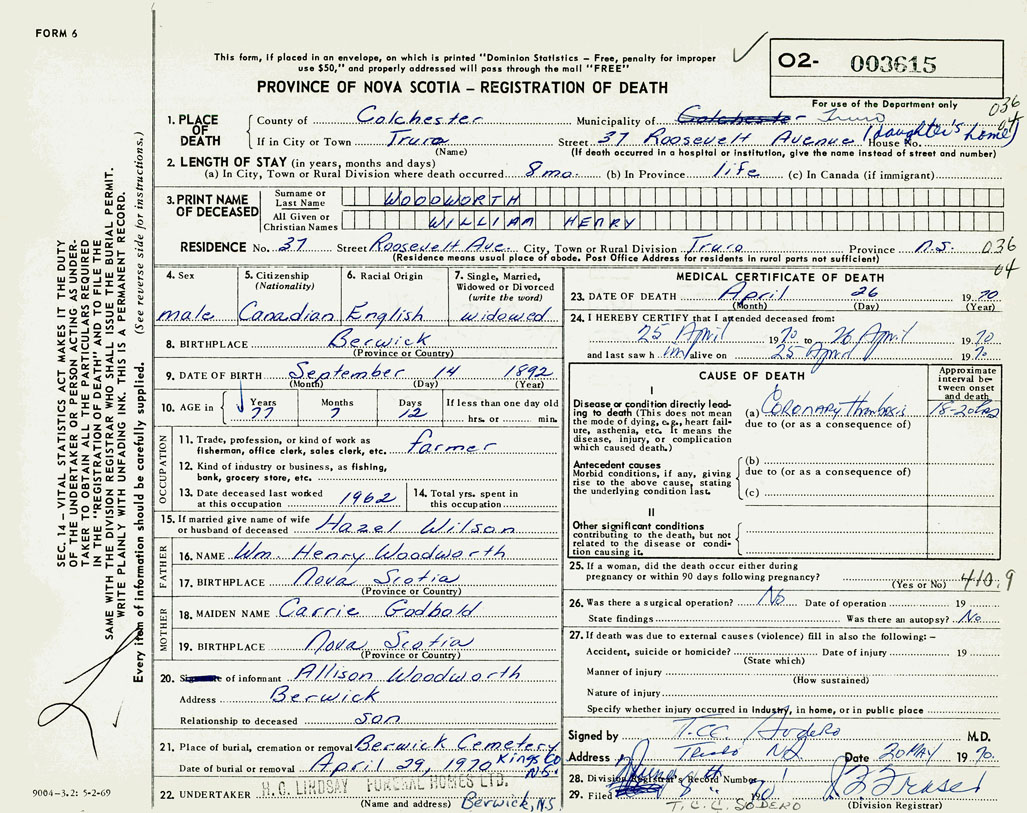 FORM 6
This form, if placed in an envelope, on which is printed "Dominion Statistics – Free, penalty for improper
use $50," and properly addressed will pass through the mail "FREE"
O2- 003615
PROVINCE OF NOVA SCOTIA – REGISTRATION OF DEATH
For use of the Department only
036
04
1. PLACE OF DEATH
County of Colchester Municipality of Colchester Truro
If in City or Town Truro Street 37 Roosevelt Avenue House No. (daughter's home)
(Name) (If death occurred in a hospital or institution, give the name instead of street and number)
2. LENGTH OF STAY (in years, months and days)
(a) In City, Town or Rural Division where death occurred 8 mo. (b) In Province life (c) In Canada (if immigrant)
3. PRINT NAME OF DECEASED
Surname or Last Name WOODWORTH
All Given or Christian Names WILLIAM HENRY
RESIDENCE No. 37 Street Roosevelt Ave. City, Town or Rural Division Truro Province N.S. 036
(Residence means usual place of abode. Post Office Address for residents in rural parts not sufficient) 04
4. Sex
male
5. Citizenship (Nationality)
Canadian
6. Racial Origin
English
7. Single, Married, Widowed or Divorced (write the word)
widowed
8. BIRTHPLACE Berwick
(Province or Country)
9. DATE OF BIRTH September 14 1892
(Month) (Day) (Year)
10. AGE in Years Months Days If less than one day old
77 7 12 hrs. or min.
OCCUPATION
11. Trade, profession, or kind of work as
fisherman, office clerk, sales clerk, etc. farmer
12. Kind of industry or business, as fishing,
bank, grocery store, etc.
13. Date deceased last worked
at this occupation 1962
14. Total yrs. spent in
this occupation
15. If married give name of wife
or husband of deceased Hazel Wilson
FATHER
16. NAME Wm. Henry Woodworth
17. BIRTHPLACE Nova Scotia
(Province or Country)
MOTHER
18. MAIDEN NAME Carrie Godbold
19. BIRTHPLACE Nova Scotia
(Province or Country)
20. of informant Allison Woodworth
Address Berwick
Relationship to deceased son
21. Place of burial, cremation or removal Berwick Cemetery
Kings Co
N.S.
Date of burial or removal April 29, 1970
22. UNDERTAKER H. C. LINDSAY FUNERAL HOMES LTD.
(Name and address) Berwick, NS
MEDICAL CERTIFICATE OF DEATH
23. DATE OF DEATH April 26 1970
(Month) (Day) (Year)
24. I HEREBY CERTIFY that I attended deceased from:
25 April 1970 to 26 April 1970
and last saw him alive on 25 April 1970
CAUSE OF DEATH
Approximate interval between onset and death
I
Disease or condition directly leading to death (This does not mean the mode of dying, e.g., heart failure, asthenia, etc. It means the disease, injury, or complication which caused death.)
(a) Coronary Thrombosis 18-20 hrs
due to (or as a consequence of)
Antecedent causes
Morbid conditions, if any, giving rise to the above cause, stating the underlying condition last.
(b)
due to (or as a consequence of)
(c)
II
Other significant conditions
contributing to the death, but not related to the disease or condition causing it.
25. If a woman, did the death occur either during
pregnancy or within 90 days following pregnancy?
(Yes or No) 410.9
26. Was there a surgical operation? No Date of operation 19
State findings Was there an autopsy? No
27. If death was due to external causes (violence) fill in also the following: –
Accident, suicide or homicide? Date of injury 19
(State which)
Manner of injury
(How sustained)
Nature of injury
Specify whether injury occurred in industry, in home, or in public place
Signed by T.C.C. Sodero M.D.
Address Truro NS Date 20 MAY 1970.
28. Division Registrar's Record Number
29. Filed
T. C. C. SODERO
(Division Registrar)
SEC. 14 – VITAL STATISTICS ACT MAKES IT THE DUTY
OF THE UNDERTAKER OR PERSON ACTING AS UNDER-
TAKER TO OBTAIN ALL THE PARTICULARS REQUIRED
IN THE "REGISTRATION OF DEATH" AND TO FILE THE
SAME WITH THE DIVISION REGISTRAR WHO SHALL ISSUE THE BURIAL PERMIT.
WRITE PLAINLY WITH UNFADING INK. THIS IS A PERMANENT RECORD.
Every item of information should be carefully supplied. (See reverse side for instructions.)
9004–3.2: 5-2-69